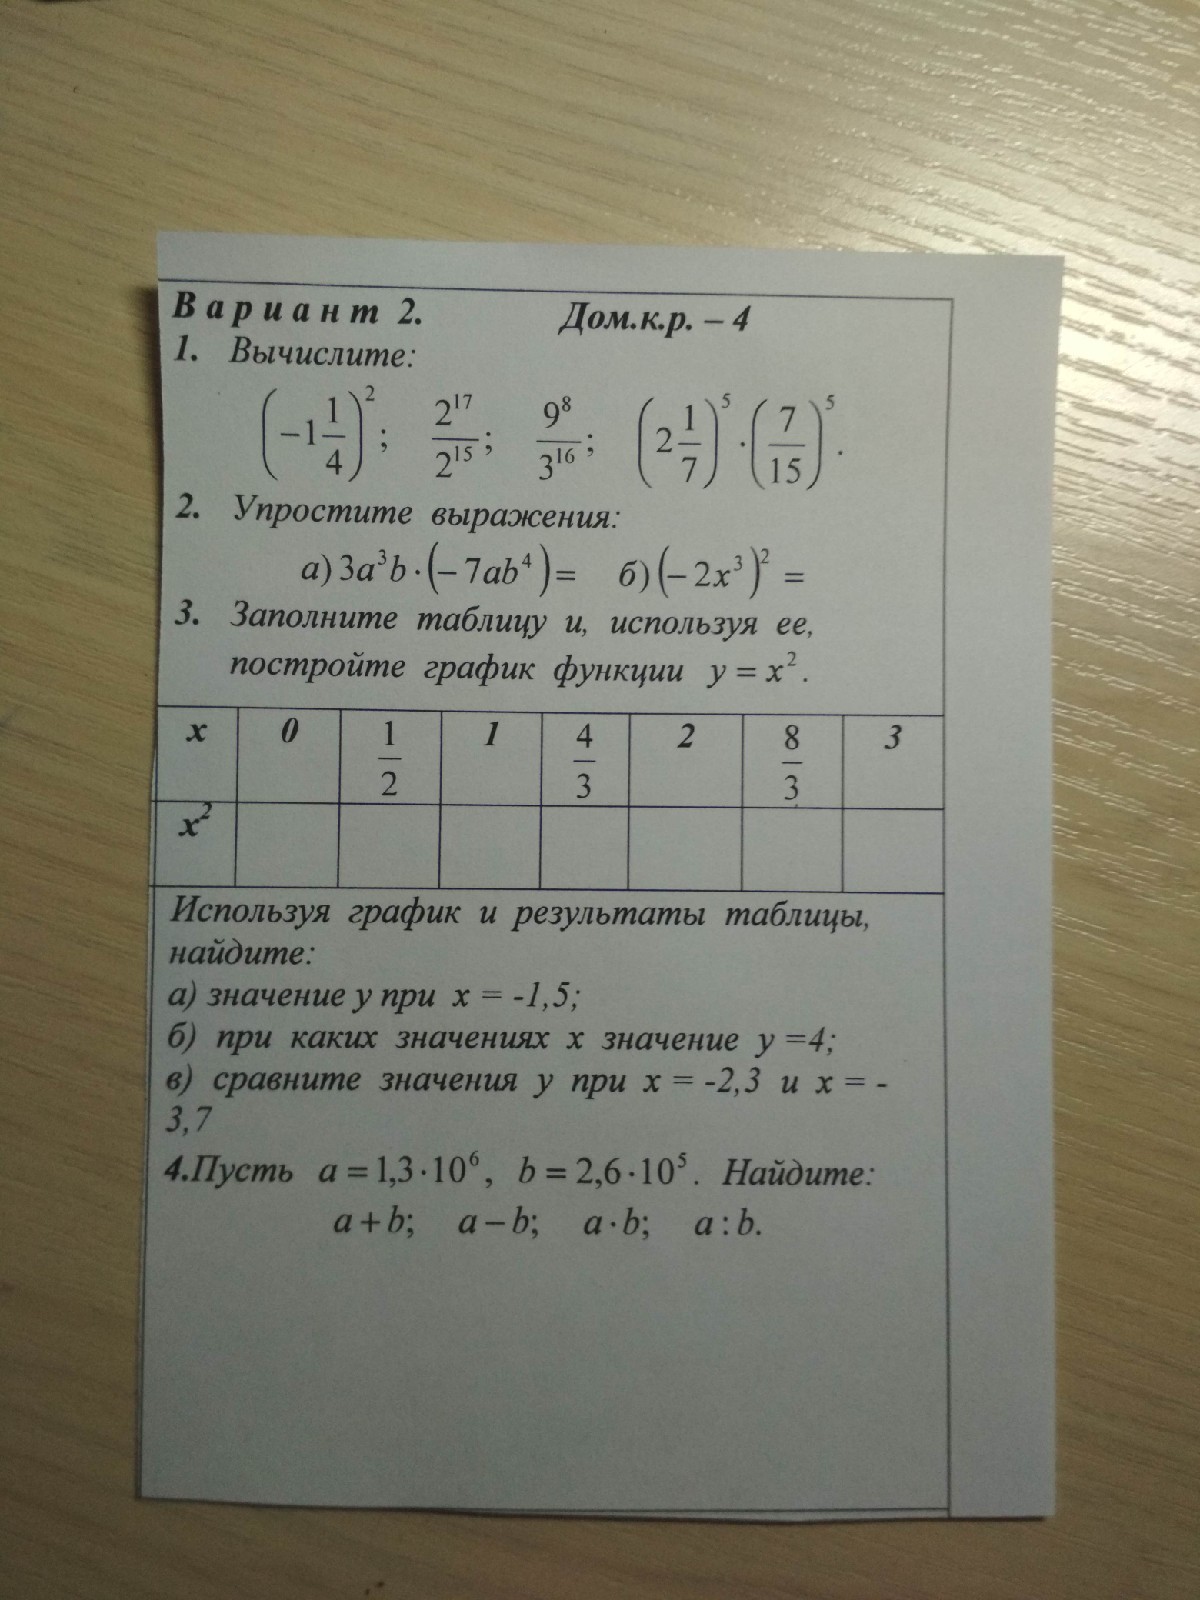 Вариант 2. Дом.к.р. – 4
1. Вычислите:
(−1 1/4)²; 2¹⁷/2¹⁵; 9⁸/3¹⁶; (2 1/7)⁵ · (7/15)⁵.
2. Упростите выражения:
а) 3a³b · (− 7ab⁴) = б) (− 2x³)² =
3. Заполните таблицу и, используя ее,
постройте график функции y = x².
x 0 1/2 1 4/3 2 8/3 3
x²
Используя график и результаты таблицы,
найдите:
а) значение у при х = -1,5;
б) при каких значениях х значение у =4;
в) сравните значения у при х = -2,3 и х = -
3,7
4.Пусть a = 1,3 · 10⁶, b = 2,6 · 10⁵. Найдите:
a + b; a − b; a · b; a : b.